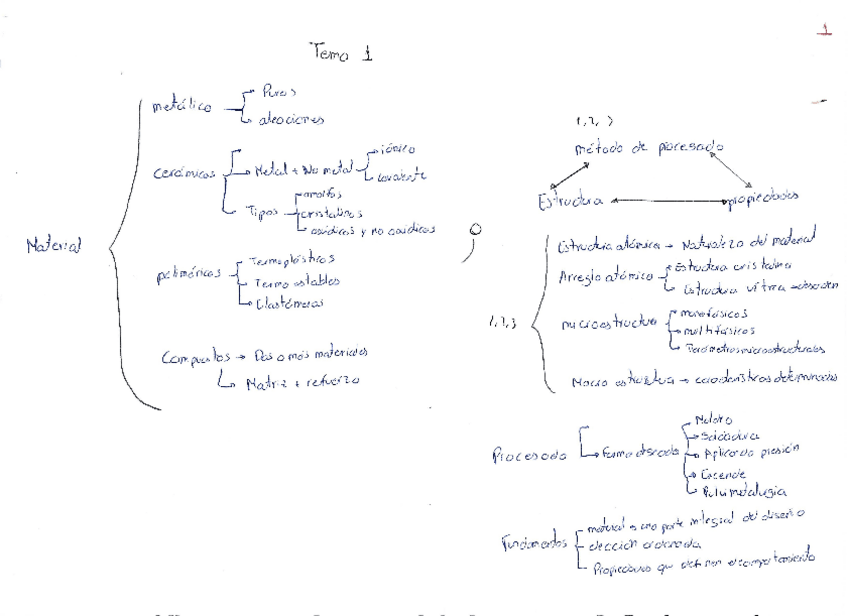 1
Tema 1
Material
metálico
Puros
aleaciones
cerámicos
Metal + No metal
iónico
covalente
Tipos
amorfos
cristalinos
oxídicos y no oxídicos
poliméricos
Termoplásticos
Termo estables
Elastómeros
Compuestos → Dos o más materiales
Matriz + refuerzo
1, 2, 3
método de procesado
Estructura
propiedades
1, 2, 3
Estructura atómica → Naturaleza del material
Arreglo atómico
Estructura cristalina
Estructura vítrea
microestructura
monofásicos
multifásicos
Parámetros microestructurales
Macro estructura → características determinadas
Procesado
Forma deseada
Moldeo
Soldadura
Aplicando presión
Pulvimetalurgia
Fundamentos
material es una parte integral del diseño
elección ordenada
Propiedades que definen el comportamiento